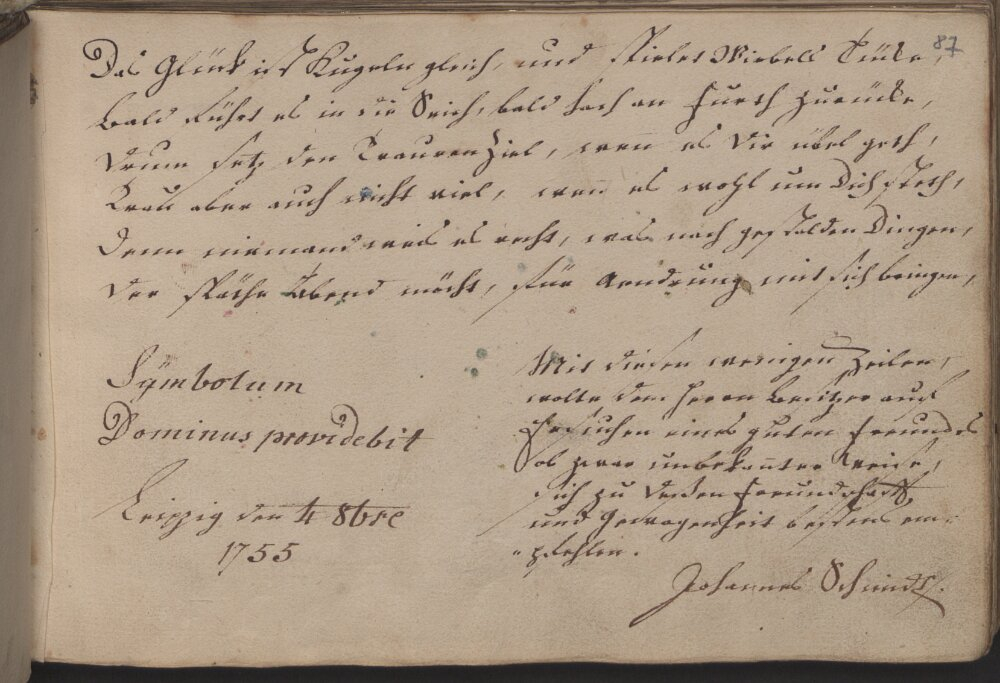 87
Das Glück ist Kugeln gleich, und spielet Wirbels Tücke,
bald führt es in die Höch, bald hoch an Furth zurücke,
Drum setz den Trauren Ziel, wen es Dir übel geth,
Trau aber auch nicht viel, wen es wohl um Dich steth,
Denn niemand weis es recht, was nach gestalden Dingen,
der späthe Abend möcht, für Aendrung mit sich bringen,
Sÿmbolum
Dominus providebit
Leipzig den 4 8bre
1755
Mit diesen wenigen Zeilen,
wolte dem Herrn Besitzer auf
Ersuchen eines guten Freundes
ob zwar unbekanter Weise,
sich zu dessen Freundschafft
und Gewogenheit bestens em=
pfehlen.
Johannes Schmidt